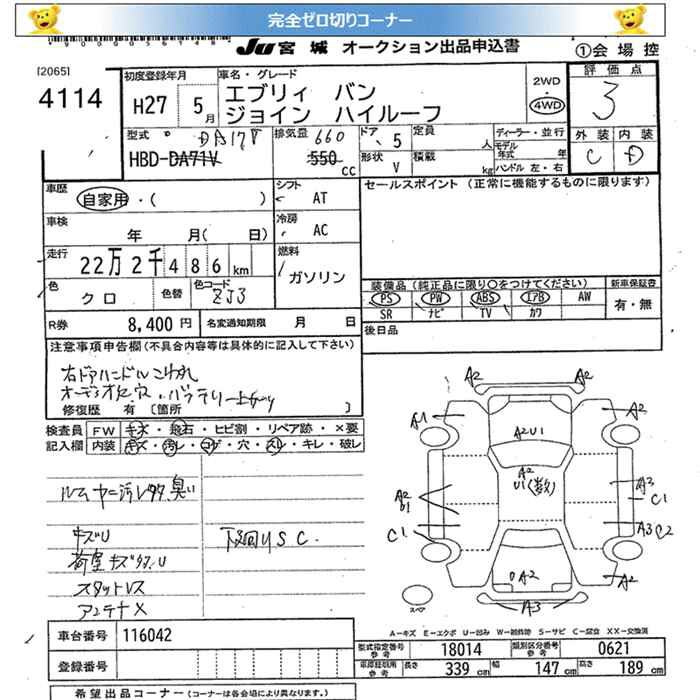 完全ゼロ切りコーナー
JU 宮城 オークション出品申込書
①会場控
[2065]
4114
初度登録年月
H27 5月
車名・グレード
エブリィ バン
ジョイン ハイルーフ
2WD
・
4WD
評価点
3
型式
DA17V
HBD-DA71V
排気量 660
550 cc
ドア 5
定員 人
形状 V
積載 kg
ディーラー・並行
モデル年式 年
ハンドル 左・右
外装 内装
C D
車歴
自家用・( )
シフト
AT
セールスポイント (正常に機能するものに限ります)
車検
年 月( 日)
冷房
AC
走行
22万2千486km
燃料
ガソリン
色
クロ
色替
色コード
ZJ3
装備品 (純正品に限り○をつけてください)
新車保証書
PS PW ABS エアB AW
SR ナビ TV カワ
有・無
R券 8,400円
名変通知期限 月 日
後日品
注意事項申告欄 (不具合内容等は具体的に記入して下さい)
右ドアハンドルこわれ
修復歴 有 [箇所 ]
検査員
記入欄
FW キズ・飛石・ヒビ割・リペア跡・×要
内装 キズ・汚レ・コゲ・穴・スレ・キレ・破レ
キズU
下回りSC.
スタットレス
アンテナX
A2
A1
A2
A2U1
A2
U1(数)
A2
U1
A3
C1
C1
A3 C2
A2
A2
A3
スペア
A=キズ E=エクボ U=凹み W=補修跡 S=サビ C=腐食 XX=交換済
車台番号 116042
型式指定番号
参考
18014
類別区分番号
参考
0621
登録番号
車庫証明用
参考
長さ 339cm
幅 147cm
高さ 189cm
希望出品コーナー (コーナーは各会場により異なります。)